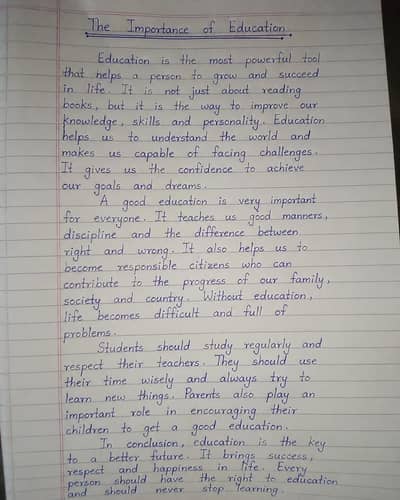 The Importance of Education
Education is the most powerful tool
that helps a person to grow and succeed
in life. It is not just about reading
books, but it is the way to improve our
knowledge, skills and personality. Education
helps us to understand the world and
makes us capable of facing challenges.
It gives us the confidence to achieve
our goals and dreams.
A good education is very important
for everyone. It teaches us good manners,
discipline and the difference between
right and wrong. It also helps us to
become responsible citizens who can
contribute to the progress of our family,
society and country. Without education,
life becomes difficult and full of
problems.
Students should study regularly and
respect their teachers. They should use
their time wisely and always try to
learn new things. Parents also play an
important role in encouraging their
children to get a good education.
In conclusion, education is the key
to a better future. It brings success,
respect and happiness in life. Every
person should have the right to education
and should never stop learning.